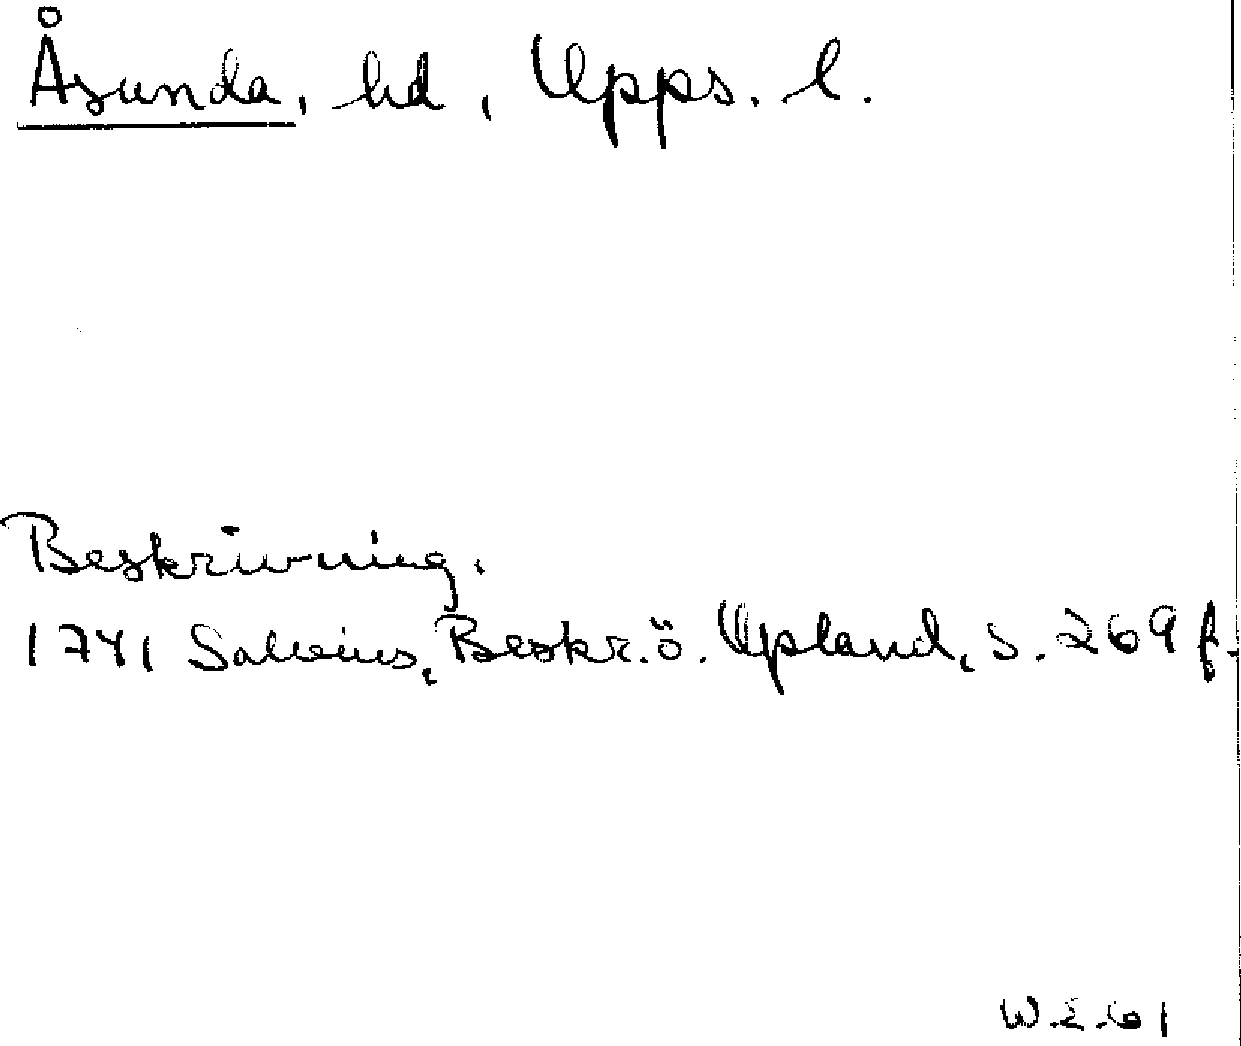 Åsunda, hd, Upps. l.
Beskrivning.
1741 Salvius, Beskr. ö. Upland, s. 269 f.
W.E.61